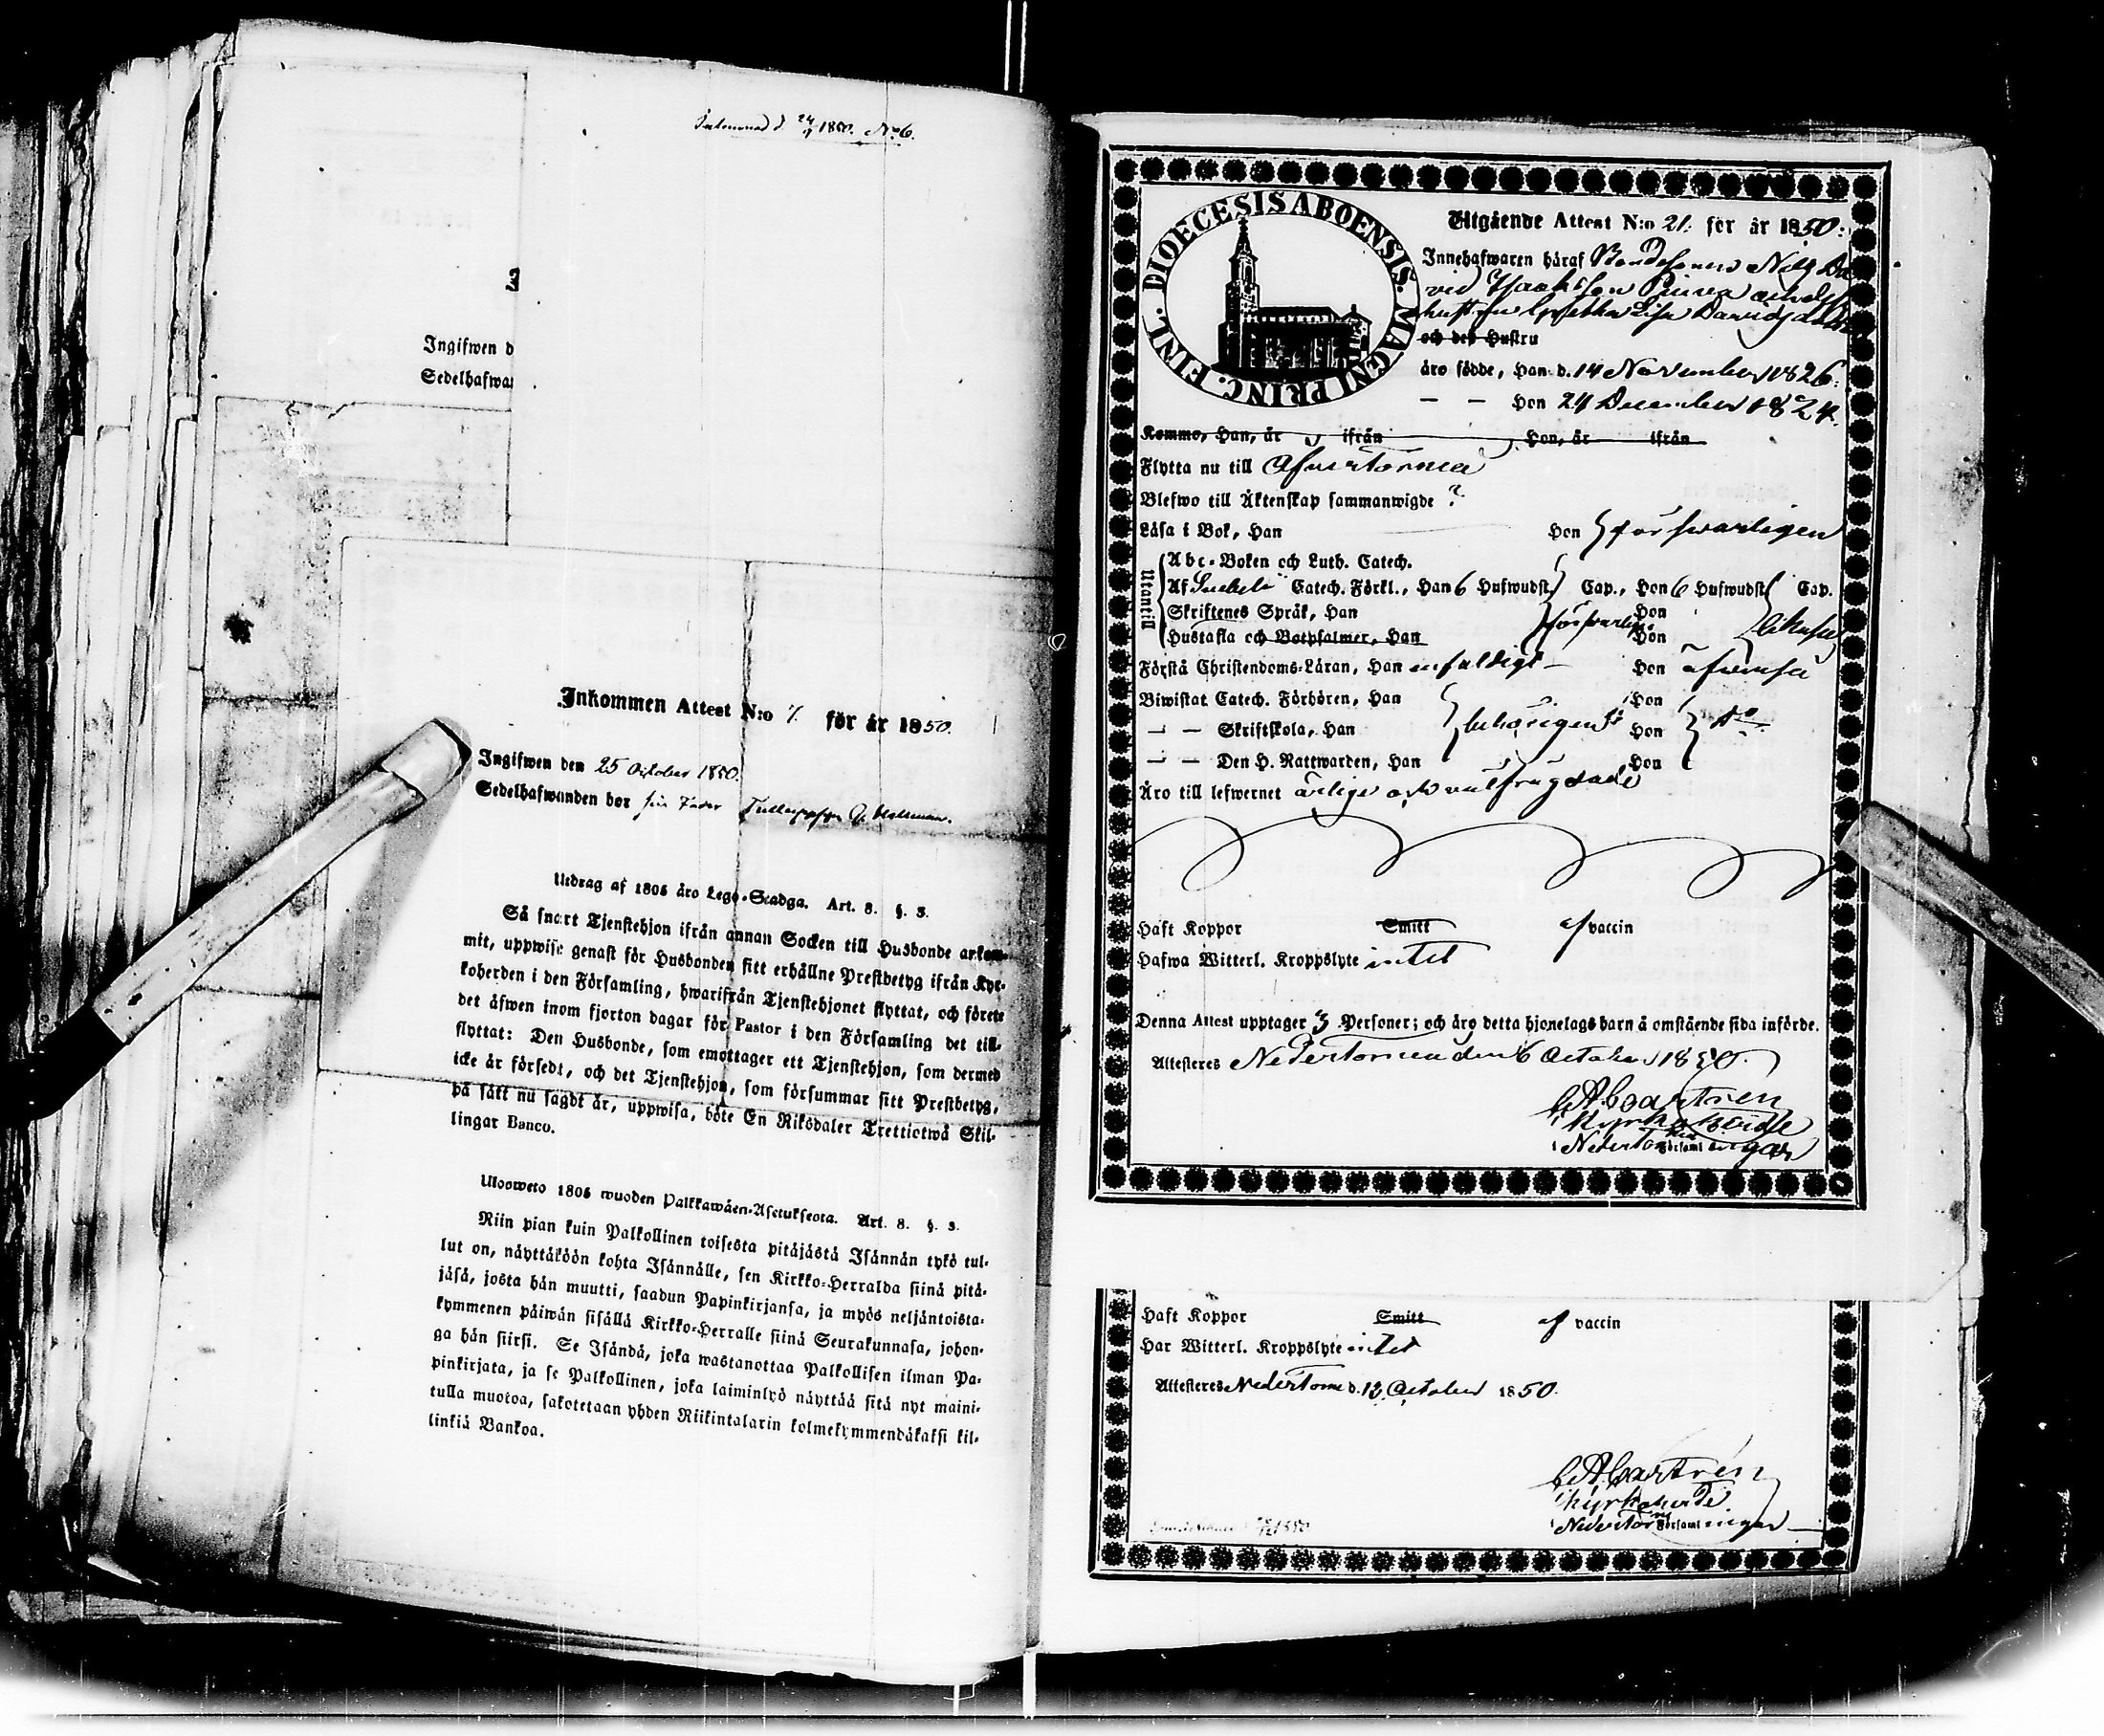 d. 24/1 1850. No 6.
Ingifwen d
Sedelhafwa
Inkommen Attest N:o 7. för år 1850.
Ingifwen den 25 October 1850.
Sedelhafwanden bor
Utdrag af 1805 års Lego-Stadga. Art. 8. §. 3.
Så snart Tjenstehjon ifrån annan Socken till Husbonde ankom-
mit, uppwise genast för Husbonden sitt erhållne Prestbetyg ifrån Kyr-
koherden i den Församling, hwarifrån Tjenstehjonet flyttat, och förete
det äfwen inom fjorton dagar för Pastor i den Församling det till-
flyttat: Den Husbonde, som emottager ett Tjenstehjon, som dermed
icke är försedt, och det Tjenstehjon, som försummar sitt Prestbetyg,
på sätt nu sagdt är, uppwisa, böte En Riksdaler Trettiotwå Skil-
lingar Banco.
Ulosweto 1805 wuoden Palkkawäen-Asetuksesta. Art. 8. §. 3.
Niin pian kuin Palkollinen toisesta pitäjästä Isännän tykö tul-
lut on, näyttäköön kohta Isännälle, sen Kirkko-Herralda siinä pitä-
jäsä, josta hän muutti, saadun Papinkirjansa, ja myös neljäntoista-
kymmenen päiwän sisällä Kirkko-Herralle siinä Seurakunnasa, johon-
ga hän siirsi. Se Isändä, joka wastanottaa Palkollisen ilman Pa-
pinkirjata, ja se Palkollinen, joka laiminlyö näyttää sitä nyt maini-
tulla muotoa, sakotetaan yhden Riikintalarin kolmekymmendäkaksi kil-
linkiä Bankoa.
DIOECESIS ABOENSIS. MAGNI PRINC. FINL.
Utgående Attest N:o 21. för år 1850.
Innehafwaren häraf Bondesonen Nils Da
vid Isaaksson
hustru Gretha Lisa Davidsdotter
och des Hustru
äro födde, Han d. 14 November 1826.
— — Hon 24 December 1824.
Kommo, Han, år ifrån Hon, år ifrån
Flytta nu till Öfvertorneå
Blefwo till Äktenskap sammanwigde ?
Läsa i Bok, Han Hon försvarligen
Utantill
Abc-Boken och Luth. Catech.
Af Catech. Förkl., Han 6 Hufwudst. Cap., Hon 6 Hufwudst. Cap.
Skriftenes Språk, Han Hon
Hustafla och Botpsalmer, Han försvarl. Hon likaså
Förstå Christendoms-Läran, Han enfaldigt Hon äfvenså
Biwistat Catech. Förhören, Han Hon
— — Skriftskola, Han behörigen Hon Do
— — Den H. Nattwarden, Han Hon
Äro till lefwernet ärlige och välfrägdade
Haft Koppor Smitt af vaccin
Hafwa Witterl. Kroppslyte intet
Denna Attest upptager 3 Personer; och äro detta hjonelags barn å omstående sida införde.
Attesteras Nedertorneå den 6 October 1850.
C A Castrén
Kyrkoherde
Nedertorneå Församlingar
Haft Koppor Smitt af vaccin
Har Witterl. Kroppslyte intet
Attesteras Nedertorne d. 12 October 1850.
C A Castrén
Kyrkoherde
Nedertorneå Församlingar